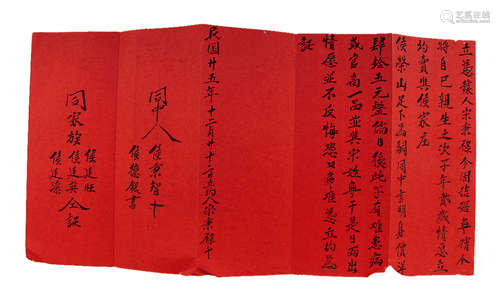 立憑發人宋秉祿今因貧窮無
將自己親生之次子年貳歲情愿立
約賣與侯家庄
侯榮山足下為嗣同中言明身價洋
肆拾五元整倘日後此子有難患病
或官高一品並與宋姓無干是日兩出
情愿並不反悔恐口無難憑立約為
証
民國廿五年十二月廿十二日立約人宋秉祿十
同中人
侯秉智十
侯德銀書
同家族
侯廷旺
侯廷英 仝証
侯廷
艺狐在线